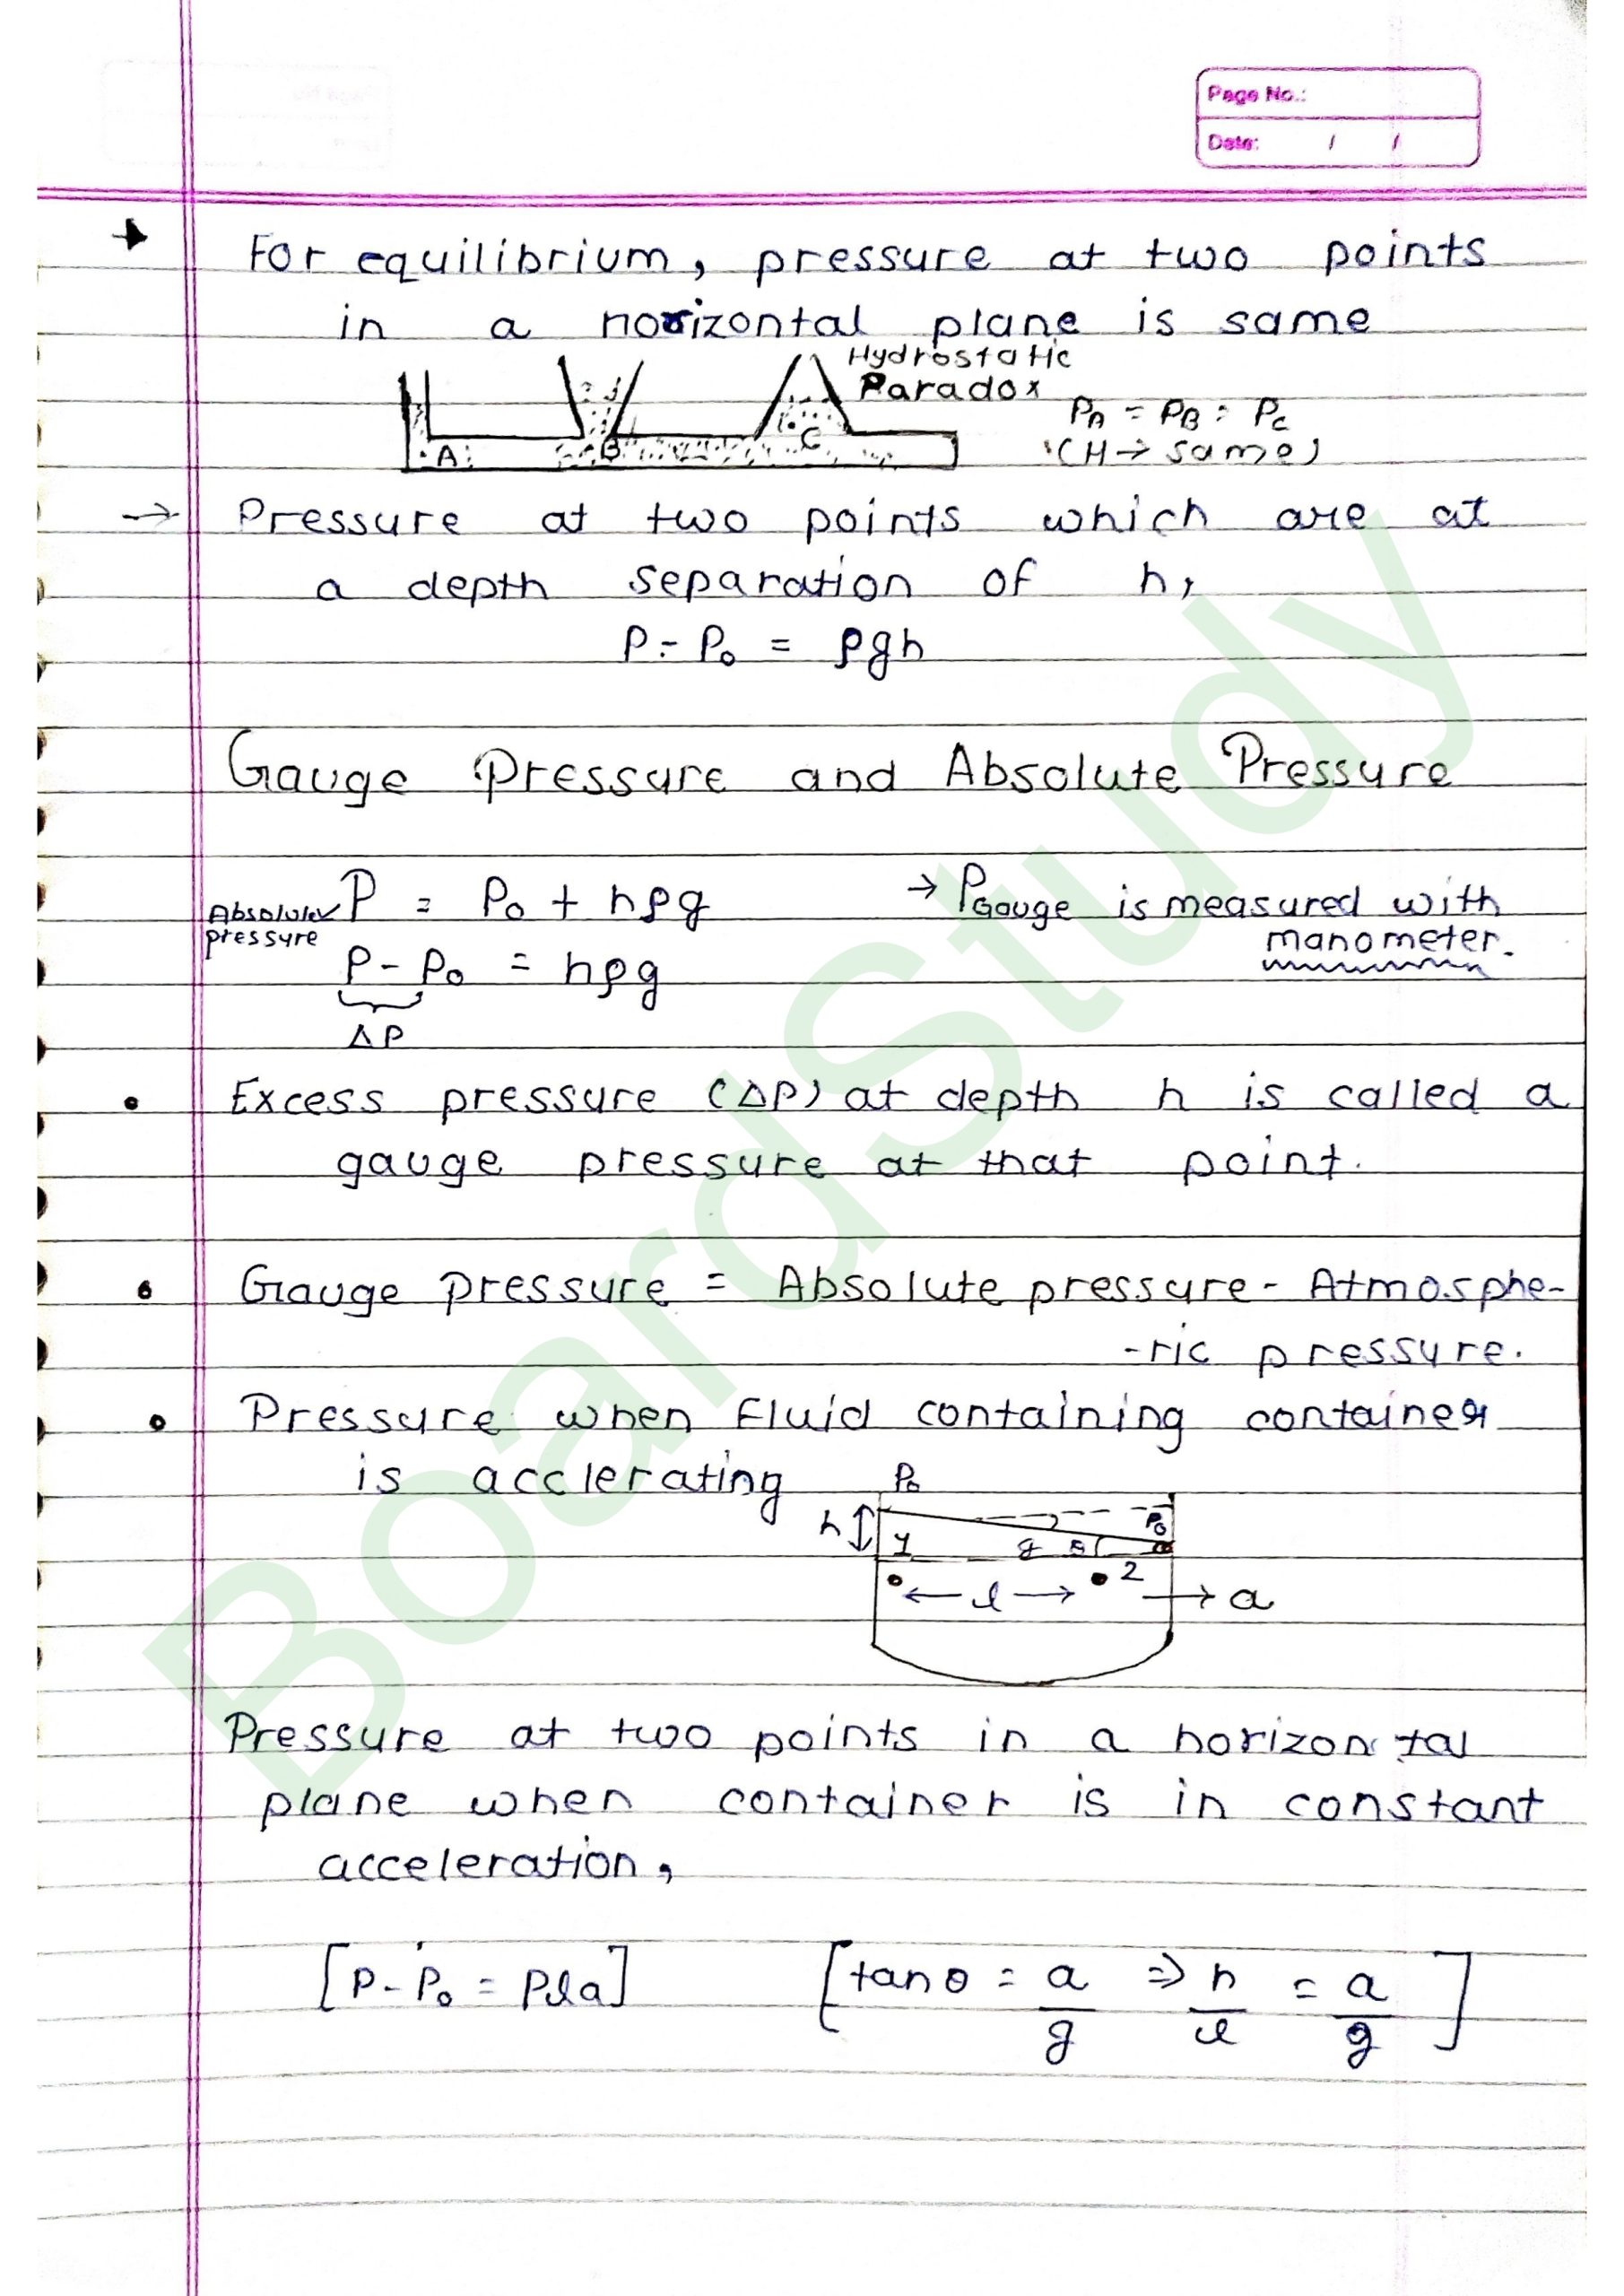 Page No.:
Date: / /
→ For equilibrium, pressure at two points
in a horizontal plane is same
Hydrostatic
Paradox
PA = PB = PC
(H → same)
A B C
→ Pressure at two points which are at
a depth separation of h,
P - P₀ = ρgh
Gauge Pressure and Absolute Pressure
Absolute pressure P = P₀ + hρg
→ PGauge is measured with
manometer.
P - P₀ = hρg
ΔP
• Excess pressure (ΔP) at depth h is called a
gauge pressure at that point.
• Gauge pressure = Absolute pressure - Atmosphe-
-ric pressure.
• Pressure when Fluid containing container
is acclerating
P₀
h P₀
θ
2
← l → → a
Pressure at two points in a horizontal
plane when container is in constant
acceleration,
[P - P₀ = ρla] [tanθ = a/g ⇒ h/l = a/g]
BoardStudy